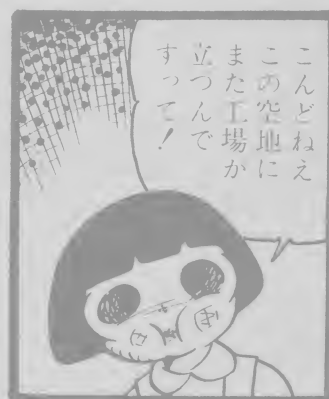 こんどねえ
この空地に
また工場が
立つんで
すって!